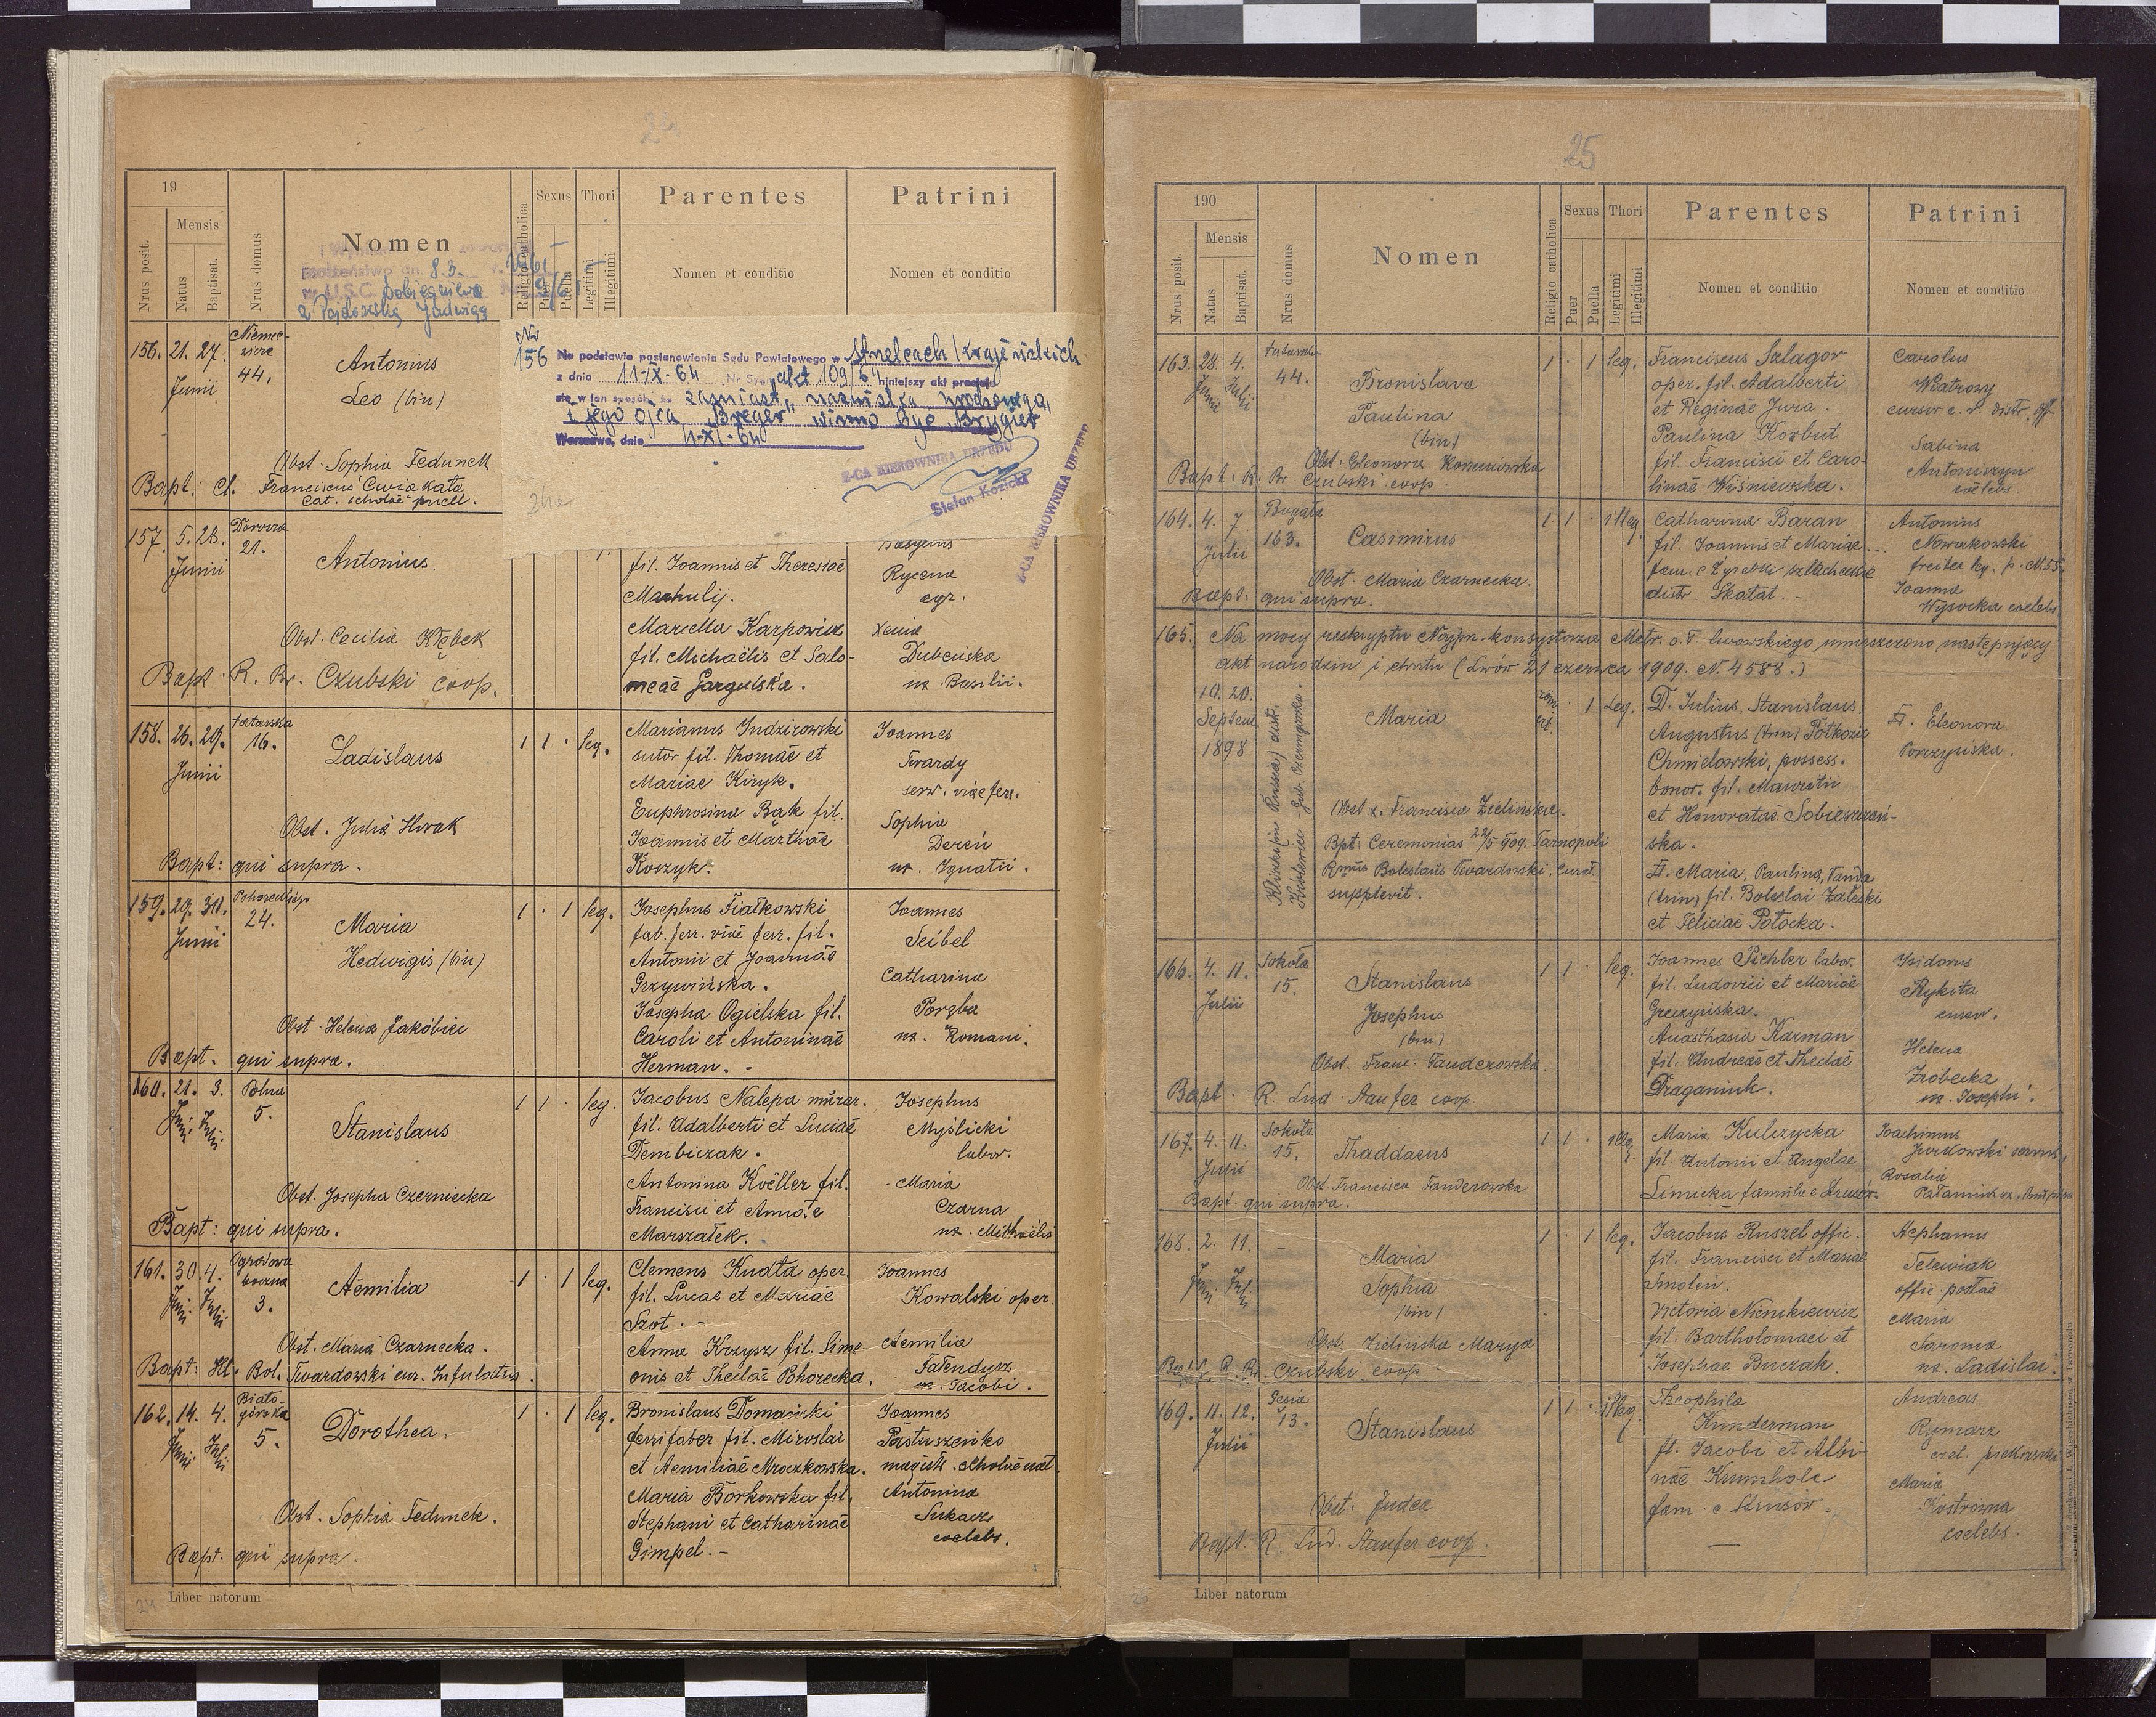 24
19
Mensis
Nrus posit.
Natus
Baptisat.
Nrus domus
Nomen
Religio catholica
Sexus
Puella
Thori
Legitimi
Illegitimi
Parentes
Nomen et conditio
Patrini
Nomen et conditio
8.3.
U.S.C.
156. 21. 27.
Junii
44.
Antonius
Leo (bin)
Obst. Sophia Fedunek
Bapt: Cl. Franciscus Ćwiąkała
Cat. scholae puell.
Nr
156
Na podstawie postanowienia Sądu Powiatowego w Strzelcach Krajeńskich
z dnia 11-IX-64 Nr akt 109/64 niniejszy akt
się w ten sposób, że zamiast nazwiska urodzonego
i jego ojca "Breger" winno być "Brygier"
Warszawa, dnia 11-XI-64
Z-CA KIEROWNIKA URZĘDU
Stefan Kozicki
Z-CA KIEROWNIKA URZĘDU
157. 5. 28.
Junii
21.
Antonius.
Obst. Cecilia Kłębek
Bapt. R. Br. Czubski coop.
fil. Joannis et Theresiae
Machulij.
Marcella Karpowicz
fil. Michaëlis et Salo-
meae Gargulska.
Basylius
Rycena
agr.
Xenia
Dubeńska
ux. Basilii.
158. 26. 29.
Junii
Tatarska
16.
Ladislaus
Obst. Julia Hwak
Bapt: qui supra.
1 1 . leg.
Marianus Indzirowski
sutor fil. Thomae et
Mariae Kiryk.
Euphrosina Bąk fil.
Joannis et Marthae
Koszyk.
Joannes
Twardy
serv. viae ferr.
Sophia
Dereń
ux. Ignatii.
159. 29. 30.
Junii
24.
Maria
Hedwigis (bin)
Obst. Helena Jakóbiec
Bapt. qui supra.
1 . 1 leg.
Josephus Fiałkowski
fab. ferr. viae ferr. fil.
Antonii et Joannae
Grzywińska.
Josepha Ogielska fil.
Caroli et Antoninae
Herman. -
Joannes
Seibel
Catharina
Poręba
ux. Romani.
160. 21. 3.
Juni Juli
Polna
5.
Stanislaus
Obst. Josepha Czerniecka
Bapt: qui supra.
1 1 . leg.
Jacobus Nalepa murar.
fil. Adalberti et Luciae
Dembiczak.
Antonina Kvëller fil.
Francisci et Annae
Marszałek.
Josephus
Myślicki
labor.
Maria
Czarna
ux. Michaëlis
161. 30. 4.
Juni Juli
Ogrodowa
boczna
3.
Aemilia
Obst. Maria Czarnecka.
Bapt: Ill. Bol. Twardowski cur. Infulatus.
1 . 1 leg.
Clemens Kudła oper.
fil. Lucae et Mariae
Szot. -
Anna Krzysz fil. Sime-
onis et Theclae Bhorecka.
Joannes
Kowalski oper.
Aemilia
Tatendysz
ux. Jacobi.
162. 14. 4.
Juni Juli
Biało-
górska
5.
Dorothea.
Obst. Sophia Fedunek.
Bapt. qui supra.
1 . 1 leg.
Bronislaus Domański
ferrifaber fil. Miroslai
et Aemiliae Mroczkowska.
Maria Borkowska fil.
Stephani et Catharinae
Gimpel. -
Joannes
Pastuszenko
magistr. scholae
Antonina
Łukacz
coelebs.
Liber natorum
24
25
190
Mensis
Nrus posit.
Natus
Baptisat.
Nrus domus
Nomen
Religio catholica
Sexus
Puer
Puella
Thori
Legitimi
Illegitimi
Parentes
Nomen et conditio
Patrini
Nomen et conditio
163. 28. 4.
Junii Julii
Tatarska
44.
Bronislava
Paulina
(bin)
Obst. Eleonora Komarnowska
Bapt. R. Br. Czubski coop.
1 . 1 leg.
Franciscus Szlagor
oper. fil. Adalberti
et Reginae Jura.
Paulina Korbut
fil. Francisci et Caro-
linae Wiśniewska.
Carolus
Wiatrowy
cursor c. r. distr. off.
Sabina
Antoniszyn
coelebs.
164. 4. 7
Julii
Bogata
163.
Casimirus
Obst. Maria Czarnecka.
Bapt: qui supra.
1 1 . illeg.
Catharina Baran
fil. Joannis et Mariae...
fam. e Zyrebki szlacheckie
distr. Skałat. -
Antonius
Nowakowski
freiter leg. p. N. 55.
Joanna
Wysocka coelebs
165. Na mocy reskryptu Najprz. konsystorza Metr. o. ł. lwowskiego umieszczono następujący
akt narodzin i chrztu (Lwów 21 czerwca 1909. N. 4588.)
10. 20.
Septem
1898
Maria
Obst. x. Francisca Zielińska.
Bpt: Ceremonias 22/5 909. Tarnopoli
Rmus Boleslaus Twardowski, curat.
supplevit.
rom. cat. . 1 Leg.
D. Julius, Stanislaus,
Augustus (trin) Pôłkozic
Chmielowski, possess.
bonor. fil. Mauritii
et Honoratae Sobieszczań-
ska.
D. Maria, Paulina, Vanda
(trin) fil. Boleslai Zaleski
et Feliciae Potocka.
D. Eleonora
Porzyńska.
166. 4. 11.
Julii
Sokola
15.
Stanislaus
Josephus
(bin)
Obst. Franc. Fanderowska.
Bapt. R. Lud. Staufer coop.
1 1 . leg.
Joannes Pichler labor.
fil. Ludovici et Mariae
Greczyńska.
Anasthasia Karman
fil. Andreae et Theclae
Draganiuk.
Isidorus
Rykita
Helena
Zróbecka
ux. Josephi.
167. 4. 11.
Julii
Sokola
15.
Thaddaeus
Obst. Francisca Fanderowska
Bapt. qui supra.
1 1 . illeg.
Maria Kulczycka
fil. Antonii et Angelae
Limicka famula e Strusów.
Joachimus
Jurkowski servus,
Rosalia
168. 2. 11.
Juni Juli
-
Maria
Sophia
(bin)
Obst. Zielińska Marya
Bapt. R. Br. Czubski coop.
1 . 1 leg.
Jacobus Ruszel offic.
fil. Francisci et Mariae
Smoleń.
Victoria Nienkiewicz
fil. Bartholomaei et
Josephae Buczak.
Stephanus
Telewiak
offic. postae
Maria
Saroma
ux. Ladislai.
169. 11. 12.
Julii
Gęsia
13.
Stanislaus
Obst. Judea
Bapt. R. Lud. Staufer coop.
1 1 . illeg.
Theophila
Kunderman
fil. Jacobi et Albi-
nae Krumholc
fam. e Strusów.
Andreas
Rymarz
czel. piekarski
Maria
Kostrowna
coelebs.
Liber natorum